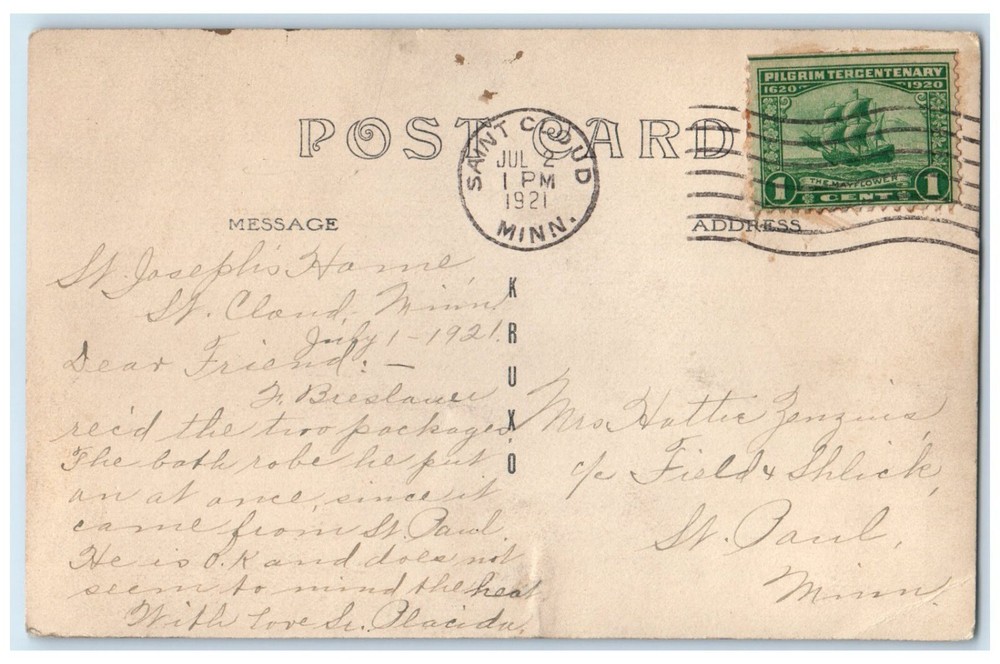 POST CARD
SAINT CLOUD
JUL 2
1 PM
1921
MINN.
PILGRIM TERCENTENARY
1620 1920
THE MAYFLOWER
1 CENT 1
MESSAGE
ADDRESS
KRUXO
St. Joseph's Home,
St. Cloud, Minn.
July 1 - 1921.
Dear Friend: -
F. Breslauer
rec'd the two packages
The bath robe he put
on at once, since it
came from St. Paul.
He is O.K and does not
seem to mind the heat
With love Sr. Placida.
Mrs Hattie
c/o Field & Shlick,
St. Paul,
Minn.